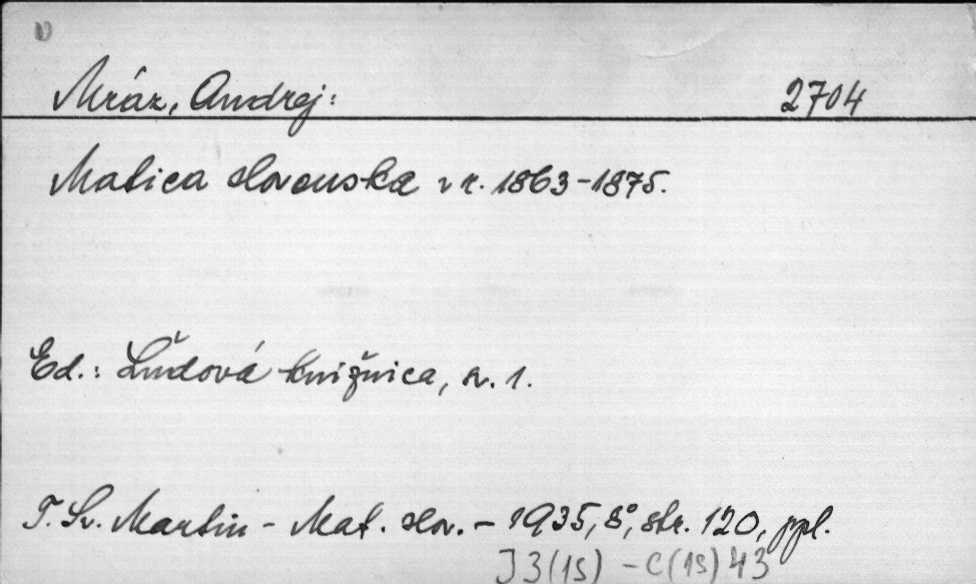 Mráz, Andrej: 2704
Matica slovenska v r. 1863-1875.
Ed.: Ľudová knižnica, sv. 1.
T. Sv. Martin - Mat. slov. - 1935, 8°, str. 120, ppl.
J3(1S) - C(1S)43